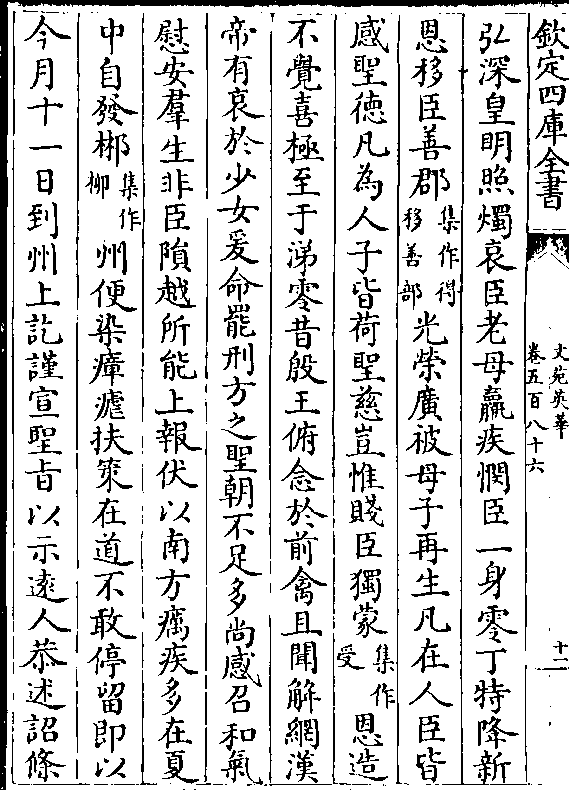 欽定四庫全書
文苑英華
卷五百八十六
十二
弘深皇明照燭哀臣老母羸疾憫臣一身零丁特降新
恩移臣善郡集作得移善部光榮廣被母子再生凡在人臣皆
感聖德凡為人子皆荷聖慈豈惟賤臣獨蒙集作受恩造
不覺喜極至于涕零昔殷王俯念於前禽且聞解網漢
帝有哀於少女爰命罷刑方之聖朝不足多尚感召和氣
慰安羣生非臣隕越所能上報伏以南方癘疾多在夏
中自發郴集作柳州便染瘴瘧扶策在道不敢停留即以
今月十一日到州上訖謹宣聖旨以示逺人恭述詔條